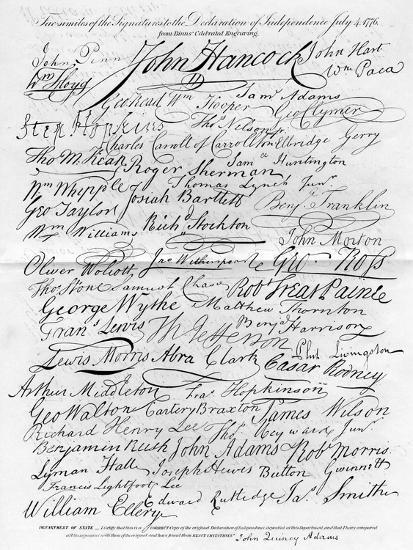 Fac-similes of the Signatures to the Declaration of Independence July 4. 1776,
from Binns' Celebrated Engraving.
John Penn John Hancock John Hart
Wm Floyd Wm Paca
Geo Read Wm Hooper Saml Adams
Geo Clymer
Step Hopkins Thos Nelson jr
Charles Carroll of Carrollton Elbridge Gerry
Tho M:Kean Roger Sherman Saml Huntington
Wm Whipple Thomas Lynch Junr
Geo Taylor Josiah Bartlett Benj Franklin
Wm Williams Richd Stockton
John Morton
Oliver Wolcott Jno Witherspoon Geo. Ross
Thos Stone Samuel Chase Robt Treat Paine
George Wythe Matthew Thornton
Frans Lewis Th Jefferson Benj Harrison
Lewis Morris Abra Clark Phil Livingston
Cæsar Rodney
Arthur Middleton Fras Hopkinson
Geo Walton Carter Braxton James Wilson
Richard Henry Lee Thos Heyward Junr
Benjamin Rush John Adams Robt Morris
Lyman Hall Joseph Hewes Button Gwinnett
Francis Lightfoot Lee
William Ellery Edward Rutledge Jas Smith
DEPARTMENT OF STATE
CORRECT Copy of the original Declaration of Independence deposited at this Department and that I have compared
all the signatures with those of the original and have found them EXACT IMITATIONS
John Quincy Adams